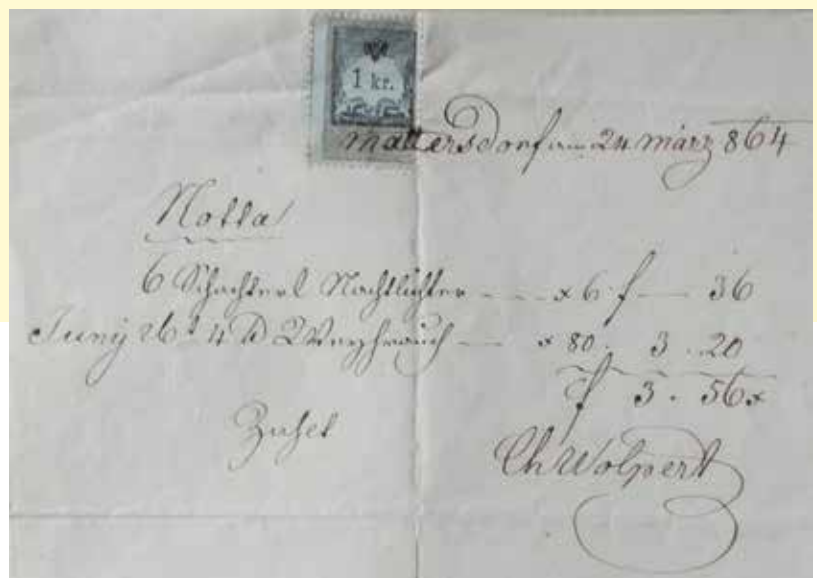 1 kr.
Mattersdorf am 24 März 864
Notta
6 Schachterl Nachtlichter x 6 f 36
Juny 26t 4 ℔ Weyhrauch x 80 . 3 . 20
f 3 . 56 x
Ch Wolpert